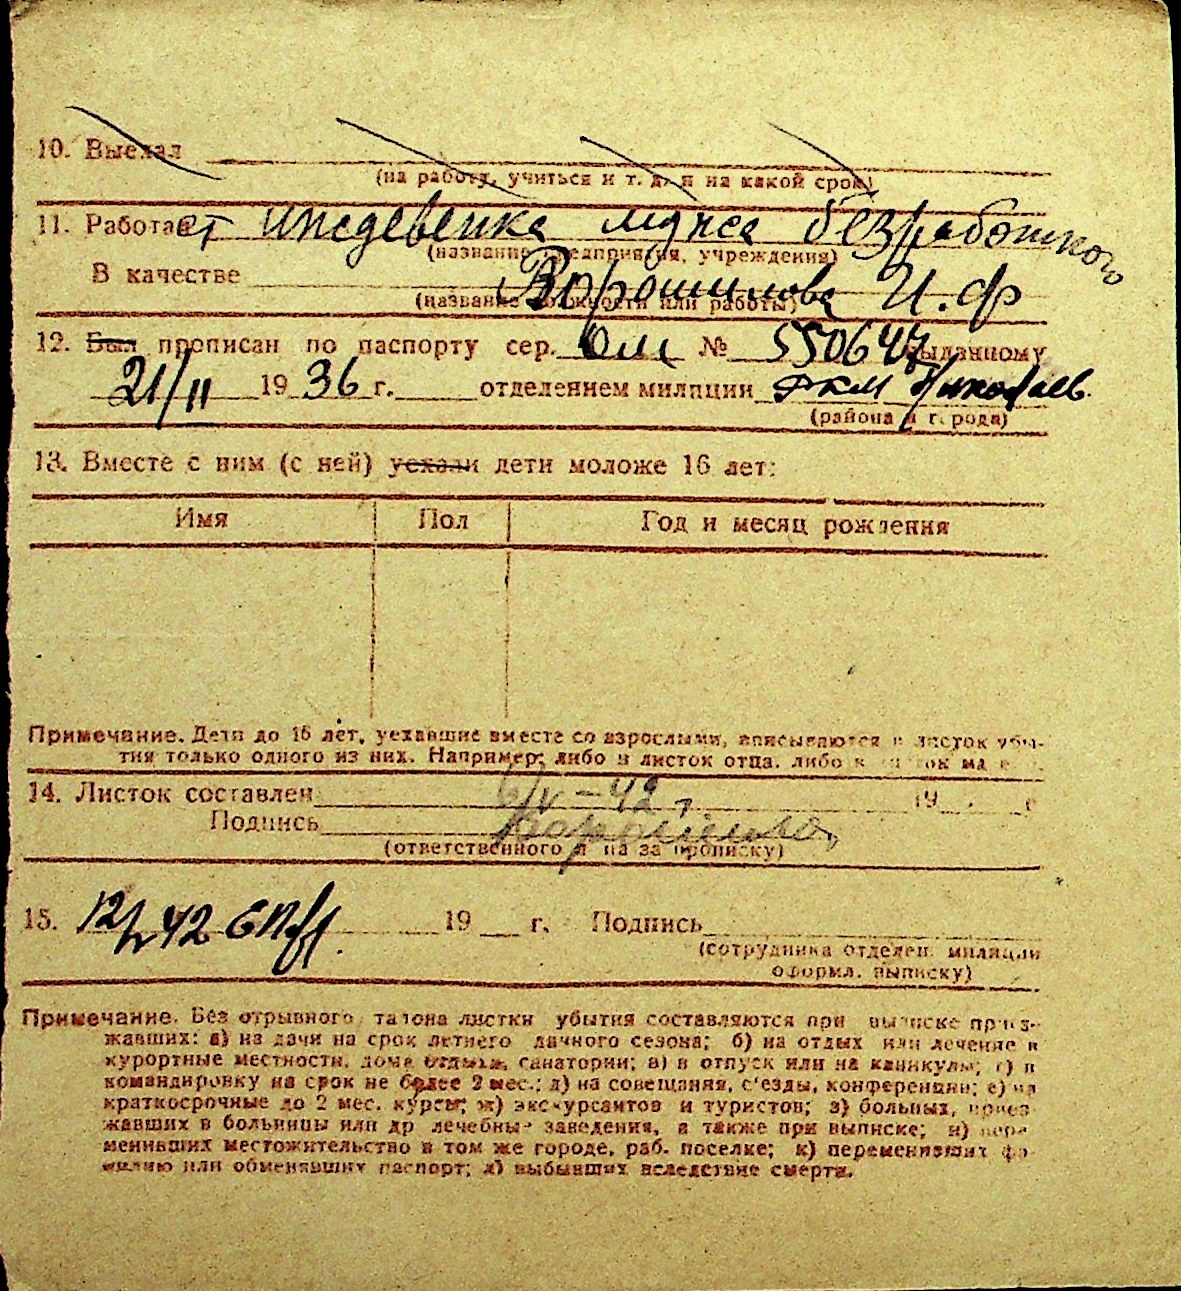 10. Выехал
(на работу, учиться и т. д. и на какой срок)
11. Работает иждевенка мужа безработного
(название предприятия, учреждения)
В качестве Ворошилова И. Ф
(название должности или работы)
12. Был прописан по паспорту сер. ОМ № 550647 выданному
21/II 1936 г. отделением милиции РКМ Николаев.
(района и города)
13. Вместе с ним (с ней) уехали дети моложе 16 лет:
Имя Пол Год и месяц рождения
Примечание. Дети до 16 лет, уехавшие вместе со взрослыми, вписываются в листок убы-
тия только одного из них. Например: либо в листок отца, либо в листок
14. Листок составлен 6/V-42 г. 19 г.
Подпись
(ответственного л на за прописку)
15. 12/V 42 19 г. Подпись
(сотрудника отделен. милиции
оформл. выписку)
Примечание. Без отрывного талона листки убытия составляются при выписке приез-
жавших: а) из дачи на срок летнего дачного сезона; б) на отдых или лечение в
курортные местности, дома отдыха, санатории; в) в отпуск или на каникулы; г) в
командировку на срок не более 2 мес.; д) на совещания, с'езды, конференции; е) на
краткосрочные до 2 мес. курсы; ж) экскурсантов и туристов; з) больных, приез-
жавших в больницы или др лечебные заведения, а также при выписке; и) пере-
менивших местожительство в том же городе, раб. поселке; к) переменивших фа-
милию или обменявших паспорт; л) выбывших вследствие смерти.